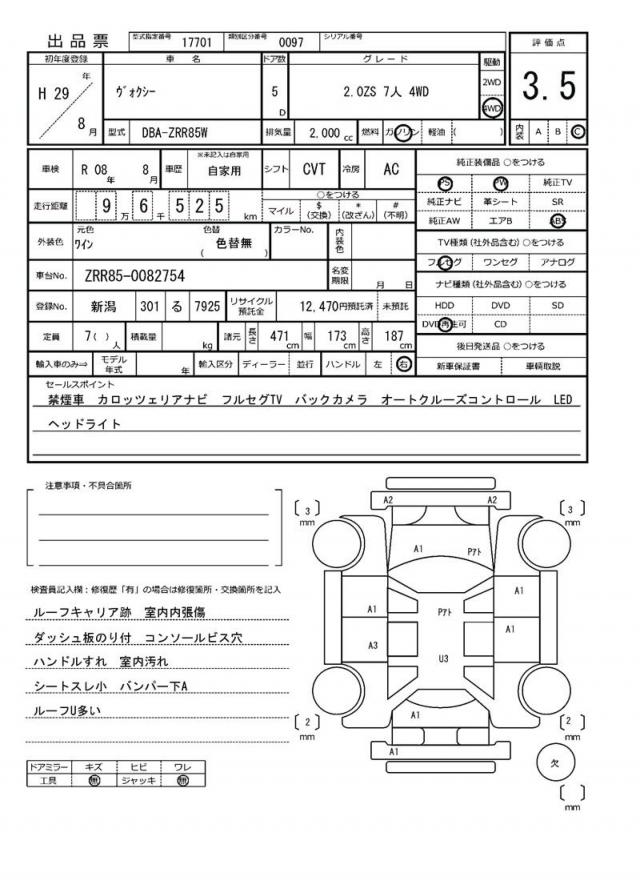 出品票 型式指定番号 17701 類別区分番号 0097 シリアル番号
初年度登録 車 名 ドア数 グレード 駆動 評価点
H 29 年 8 月 ヴォクシー 5 D 2.0ZS 7人 4WD 2WD 4WD 3.5
型式 DBA-ZRR85W 排気量 2,000 cc 燃料 ガソリン 軽油 ( ) 内装 A B C
車検 R 08 年 8 月 車歴 ※未記入は自家用 自家用 シフト CVT 冷房 AC
純正装備品 ○をつける
PS PW 純正TV
走行距離 9 万 6 千 5 2 5 km ○をつける
マイル $ (交換) * (改ざん) # (不明)
純正ナビ 革シート SR
純正AW エアB ABS
外装色 元色 ワイン 色替 ( 色替無 ) カラーNo. 内装色
TV種類 (社外品含む) ○をつける
フルセグ ワンセグ アナログ
車台No. ZRR85-0082754 名変期限 月 日
ナビ種類 (社外品含む) ○をつける
登録No. 新潟 301 る 7925 リサイクル預託金 12,470円預託済 未預託
HDD DVD SD
DVD再生可 CD
定員 7( ) 人 積載量 kg 諸元 長さ 471 cm 幅 173 cm 高さ 187 cm
後日発送品 ○をつける
輸入車のみ⇒ モデル年式 年 輸入区分 ディーラー 並行 ハンドル 左 右
新車保証書 車輌取説
セールスポイント
禁煙車 カロッツェリアナビ フルセグTV バックカメラ オートクルーズコントロール LED
ヘッドライト
注意事項・不具合箇所
検査員記入欄:修復歴「有」の場合は修復箇所・交換箇所を記入
ルーフキャリア跡 室内内張傷
ダッシュ板のり付 コンソールビス穴
ハンドルすれ 室内汚れ
シートスレ小 バンパー下A
ルーフU多い
ドアミラー キズ ヒビ ワレ
工具 無 ジャッキ 無
A2 A2
3 mm 3 mm
A1 Pアト
A1 Pアト A1
A1
A3 U3
2 mm 2 mm
A1
A1
欠
mm